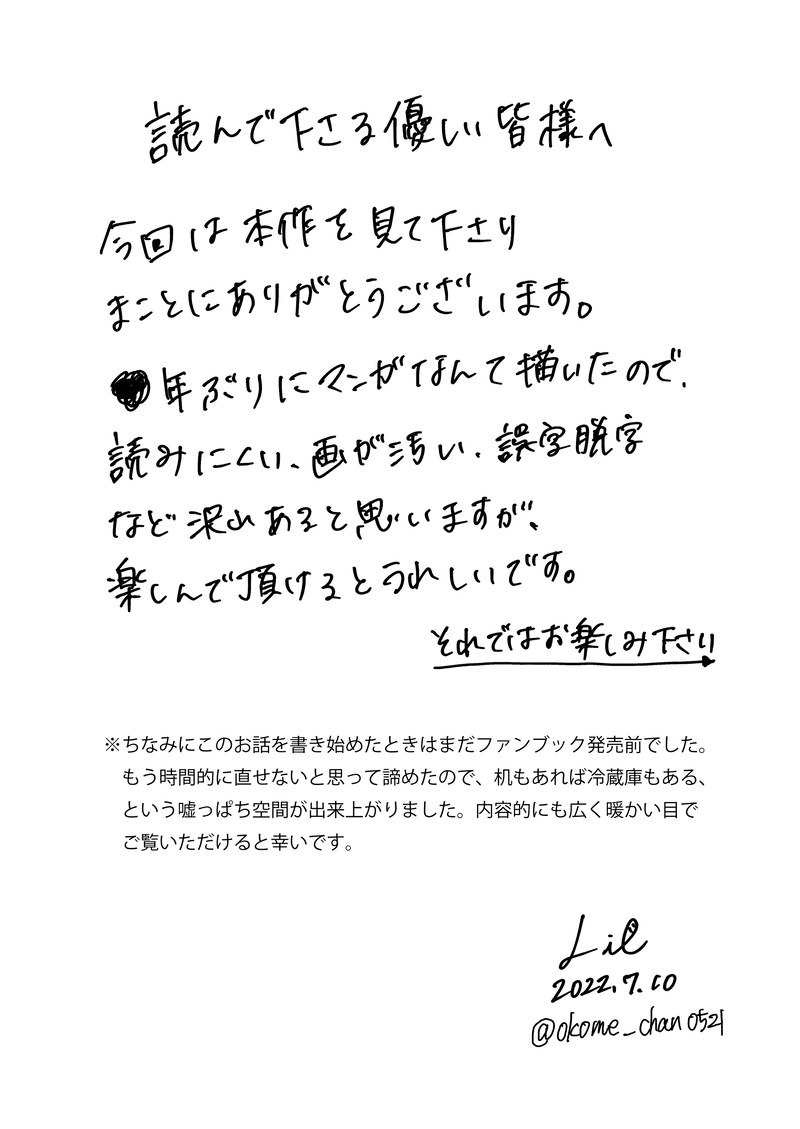 読んで下さる優しい皆様へ
今回は本作を見て下さり
まことにありがとうございます。
年ぶりにマンガなんて描いたので、
読みにくい、画が汚い、誤字脱字
など沢山あると思いますが、
楽しんで頂けるとうれしいです。
それではお楽しみ下さい
※ちなみにこのお話を書き始めたときはまだファンブック発売前でした。
もう時間的に直せないと思って諦めたので、机もあれば冷蔵庫もある、
という嘘っぱち空間が出来上がりました。内容的にも広く暖かい目で
ご覧いただけると幸いです。
Lil
2022.7.10
@okome_chan0521